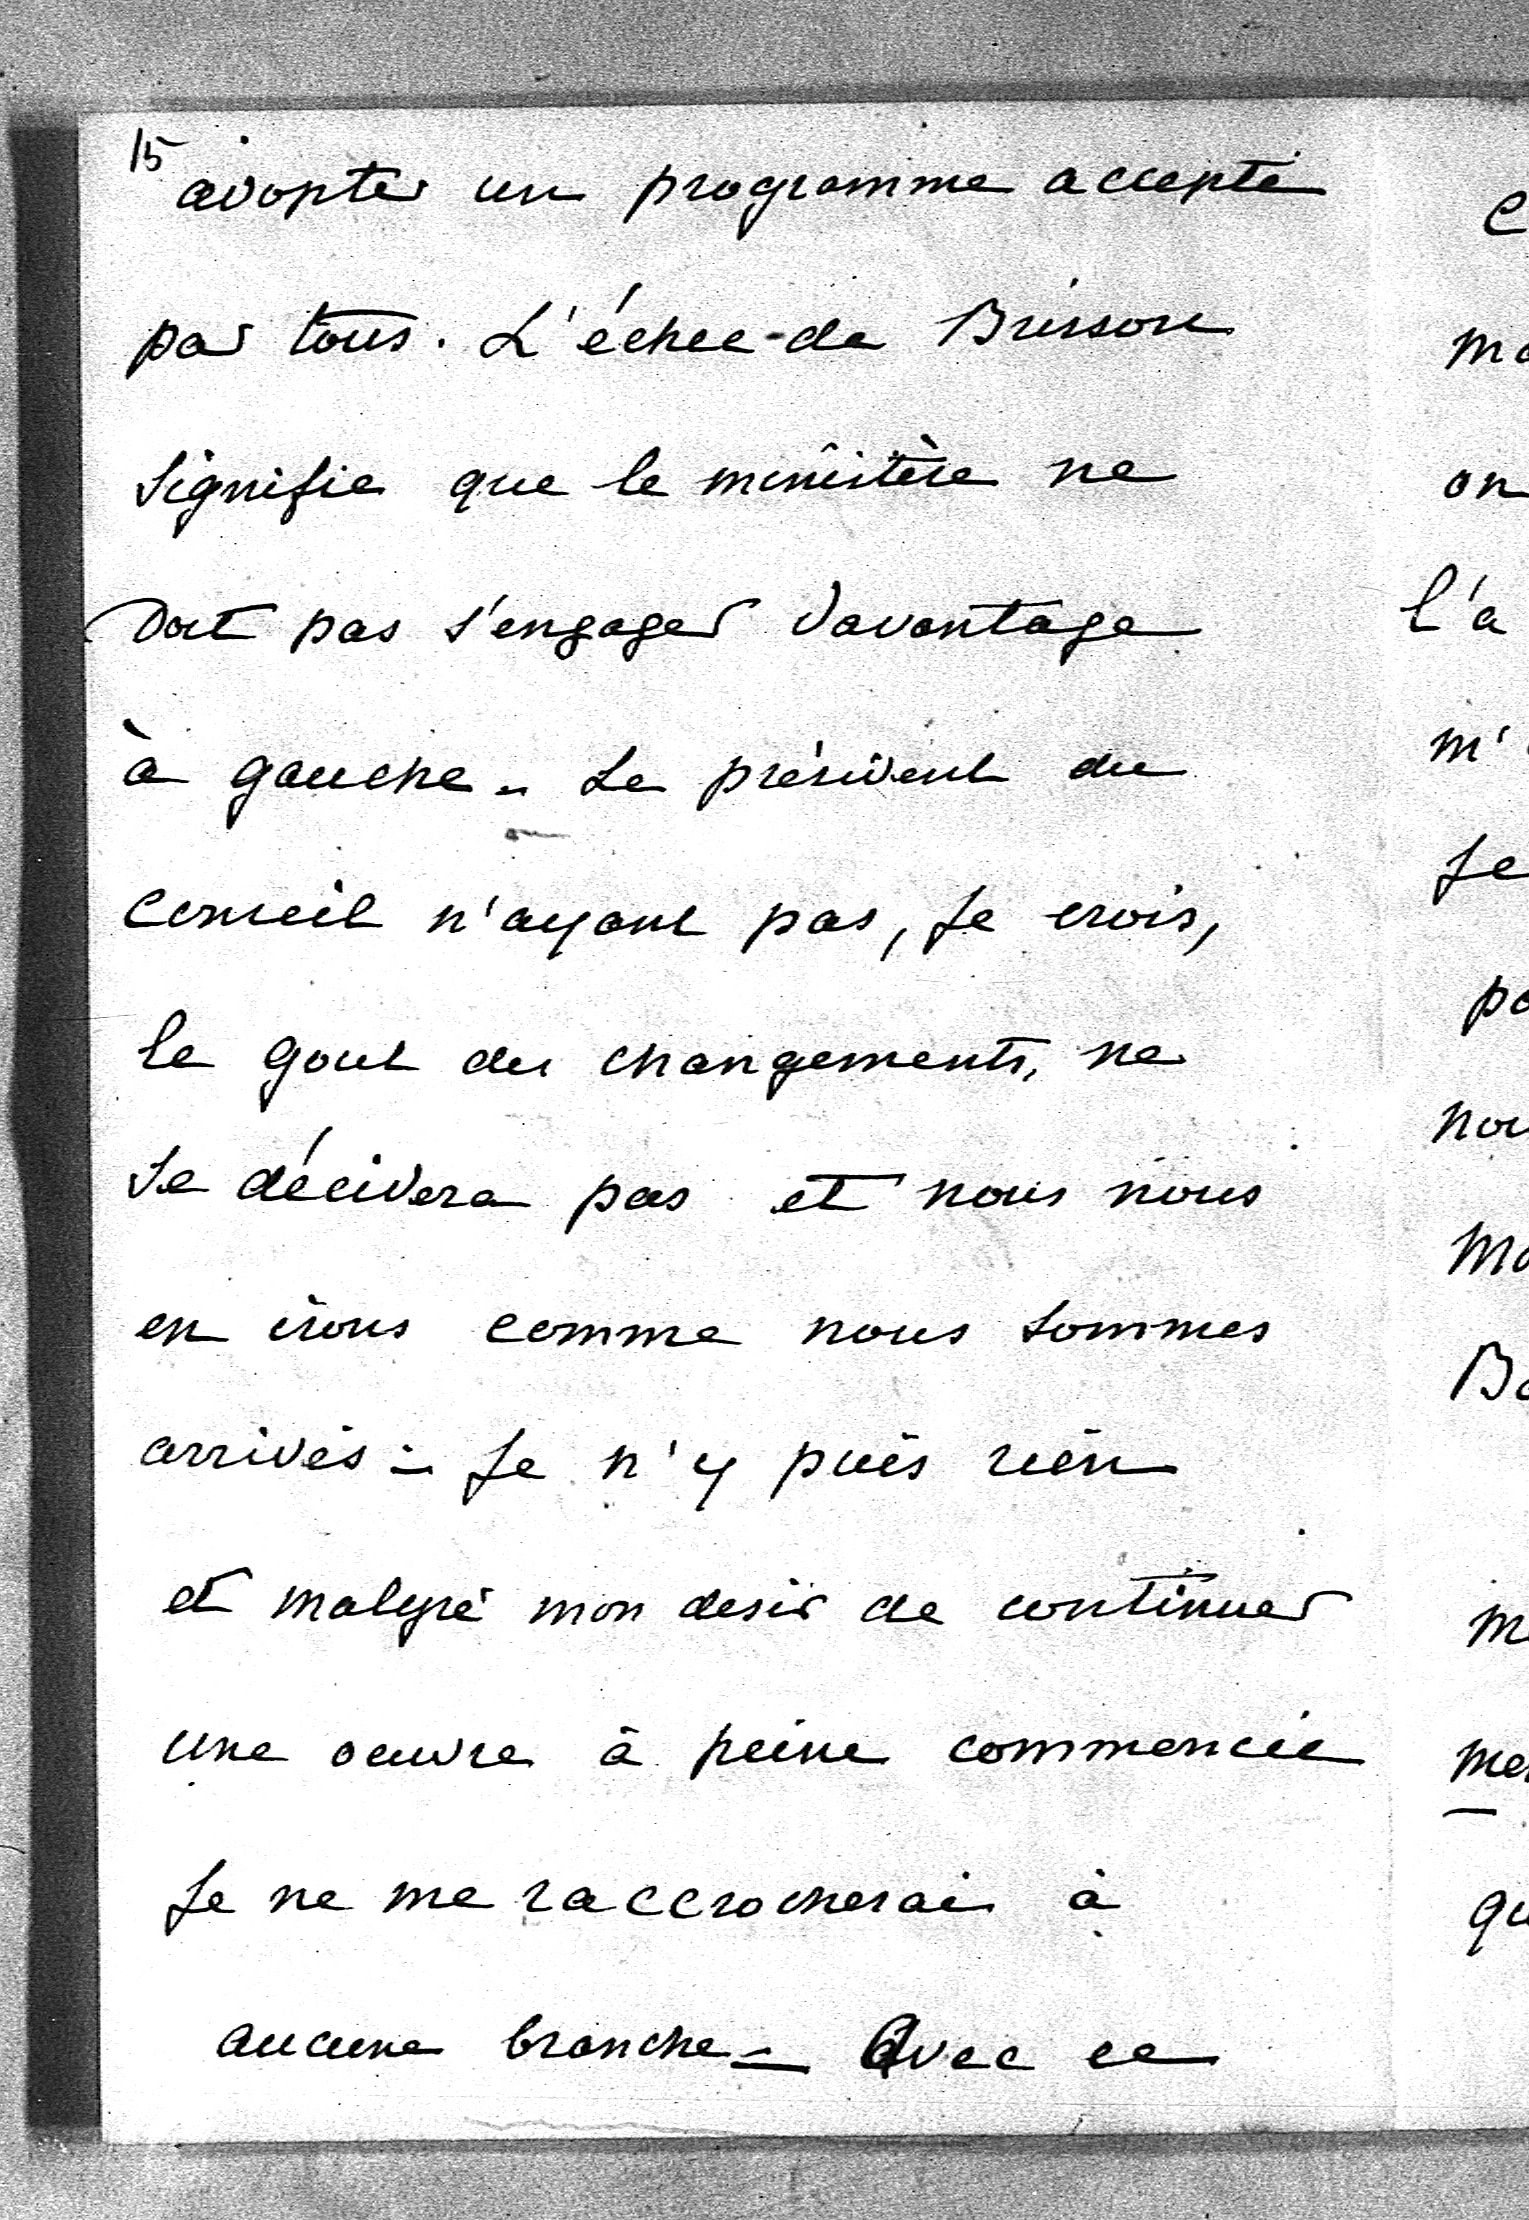 15
adopter un programme accepté
par tous. L'échec de Brisson
signifie que le ministère ne
doit pas s'engager davantage
à gauche - Le président du
conseil n'ayant pas, je crois,
le gout des changements, ne
se décidera pas et nous nous
en irons comme nous sommes
arrivés - je n'y puis rien
et malgré mon desir de continuer
une oeuvre à peine commencée
je ne me raccrocherai à
aucune branche - Avec ce